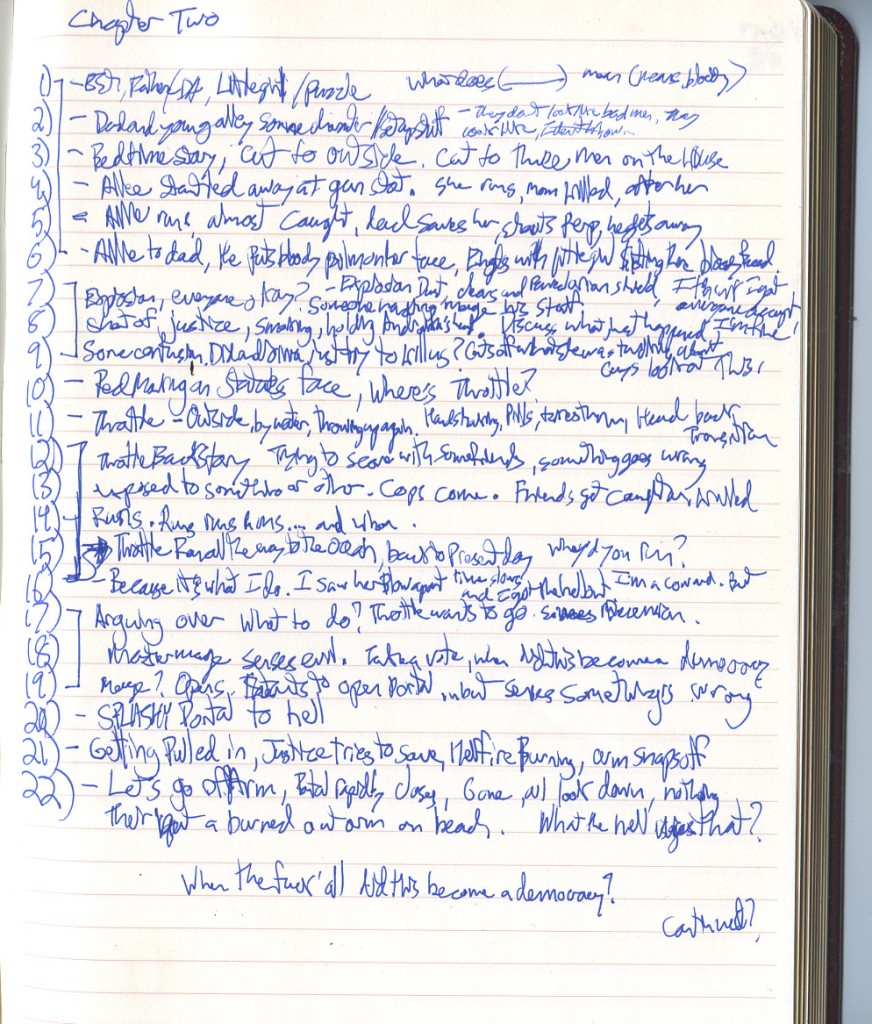 Chapter Two
1) - Est, Father/DA, Little girl/puzzle What does (⟶) mean (means bloody)
2) - Dad and young alley some /setup stuff - They don't look like bad men, they look like, I don't know...
3) - Bedtime story, cut to outside. Cut to three men on the House
4) - Allee startled away at gun shot. She runs, mom killed, after her
5) - Allie runs, almost caught, dad saves her, shoots perp, he gets away
6) - Allie to dad, He puts bloody palm on her face, Ends with little girl her bloody hand.
7) Explosion, everyone okay? - Explosion Dust clears and shield I think I got everyone except
8) shot of justice, smoking, holding hand. Someone mage his staff. Discuss what just happened I'm fine!
9) Some confusion. Did Madonna just try to kill us? Cuts off what she was talking about Guys look at THIS!
10) - Red Making an face, Where's Throttle?
11) - Throttle - Outside, by water, throwing up again. Hands shaking, Pills, tosses them, Head back Transition
12) Throttle Backstory Trying to score with some friends, something goes wrong
13) exposed to something or other. Cops come. Friends get caught and killed
14) - Runs. Runs runs runs... and when.
15) Throttle Ran all the way to the ocean, back to Present day why'd you run?
16) - Because it's what I do. I saw her blow apart time slows and I got the hell out I'm a coward. But
17) Arguing over what to do? Throttle wants to go.
18) Master mage senses evil. Taking vote, when did this become a democracy
19) Mage? Opens. to open Portal, but senses something's wrong
20) - SPLASHY Portal to hell
21) - Getting Pulled in, Justice tries to save, Hellfire Burning, arm snaps off
22) - Let's go of Arm, Portal rapidly closes, Gone, all look down, nothing
there but a burned out arm on beach. What the hell was that?
When the fuck'all did this become a democracy?
Continued?